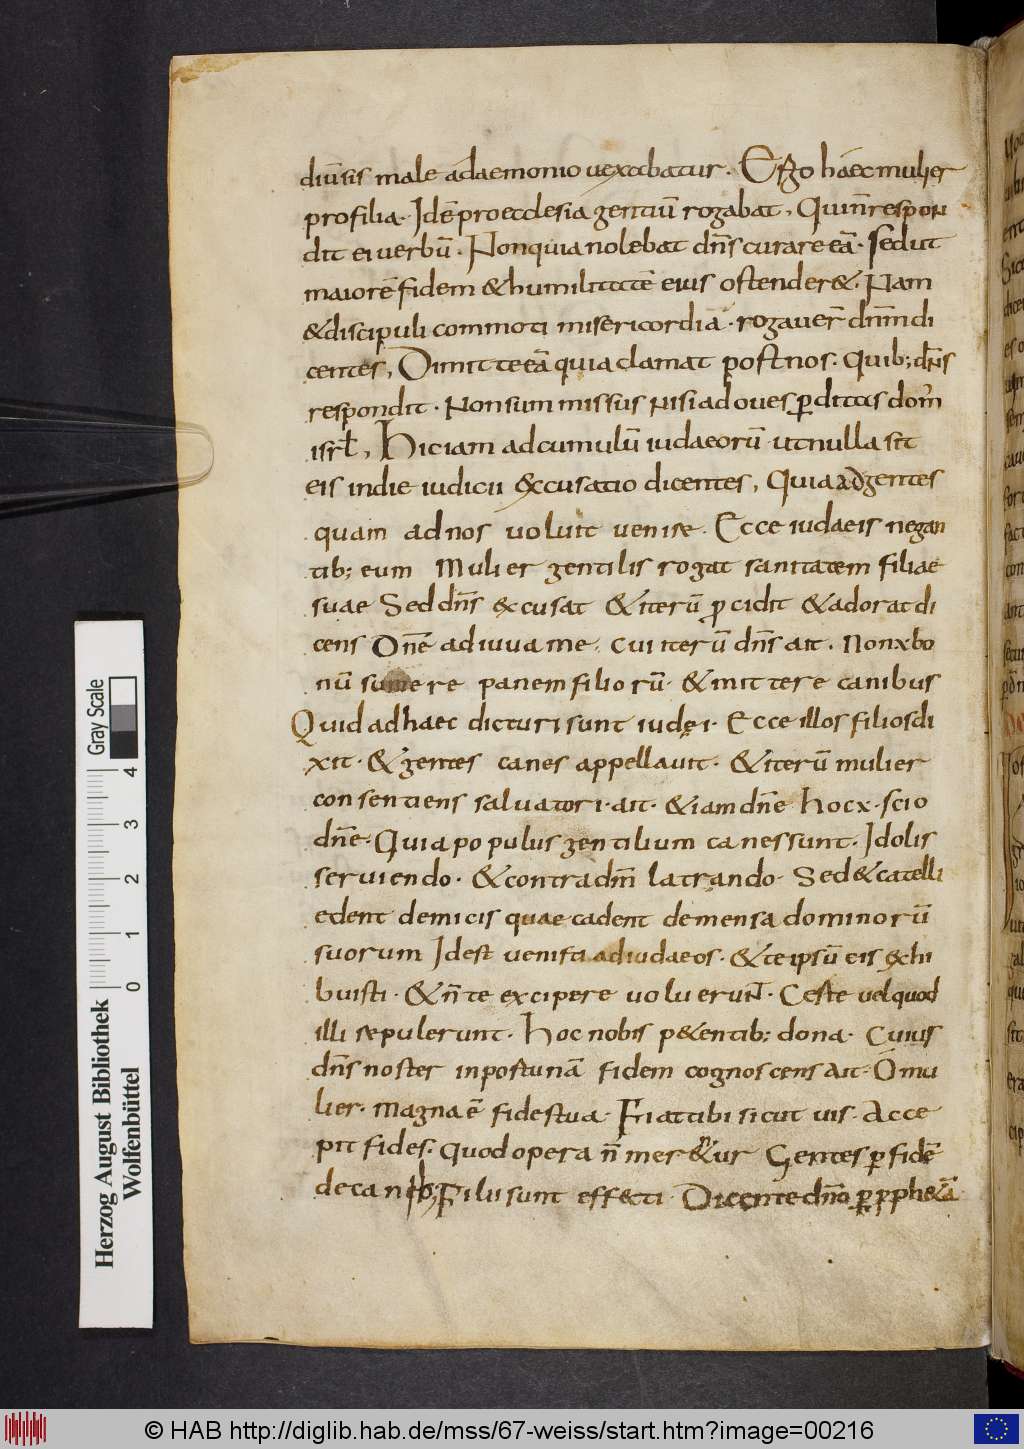 diu̅sis male ad̅aemonio uexabatur. Ergo haec mulier
profilia. Ide̅ proecclesia gentiu̅ rogabat, Quin̅ respon
dit ei uerbu̅. Nonquianolebat dn̅s curare ea̅. sedut
maiore̅ fidem &humilitate̅ eius ostender&. Nam
&discipuli commoti misericordia. rogauer̅ dnm̅ di
centes, Dimitte ea̅ quia clamat postnos. Quib; dn̅s
respondit. Nonsum missus nisi adoues p̲ditas dom̅
isrl̅, Hic iam adcumulu̅ iudaeoru̅ utnulla sit
eis indie iudicii excusatio dicentes, Quia adgentes
quam adnos uoluit uenire. Ecce iudaeis negan
tib; eum Mulier gentilis rogat sanitatem filiae
suae Sed dn̅s excusat &iteru̅ p̲cidit &adorat di
cens Dn̅e adiuua me. cui iteru̅ dn̅s ait. Non÷ bo
nu̅ sumere panem filioru̅. &mittere canibus
Quid adhaec dicturi sunt iudei. Ecce illos filios di
xit. &gentes canes appellauit. &iteru̅ mulier
consentiens saluatori. ait. &iam dn̅e hoc÷. scio
dn̅e. Quia populus gentilium canes sunt. Idolis
seruiendo. &contra dm̅ latrando. Sed &catelli
edent demicis quae cadent demensa dominoru̅
suorum Idest uenisti adiudaeos. &teipsu̅ eis exhi
buisti. &n̅ te excipere uoluerunt. Ceste uelquod
illi repulerunt. Hoc nobis p&entib; dona. Cuius
dn̅s noster inportuna̅ fidem cognoscens ait. O mu
lier. Magna e̅ fidestua. Fiat tibi sicut uis. Acce
pit fides. quod opera n̅ mer&ur Gentes p̲ fide̅
decanib; Filii sunt effecti Dicente dn̅o p̲ p̲ph&a̅
Herzog August Bibliothek
Wolfenbüttel
Gray Scale
0 1 2 3 4
© HAB http://diglib.hab.de/mss/67-weiss/start.htm?image=00216